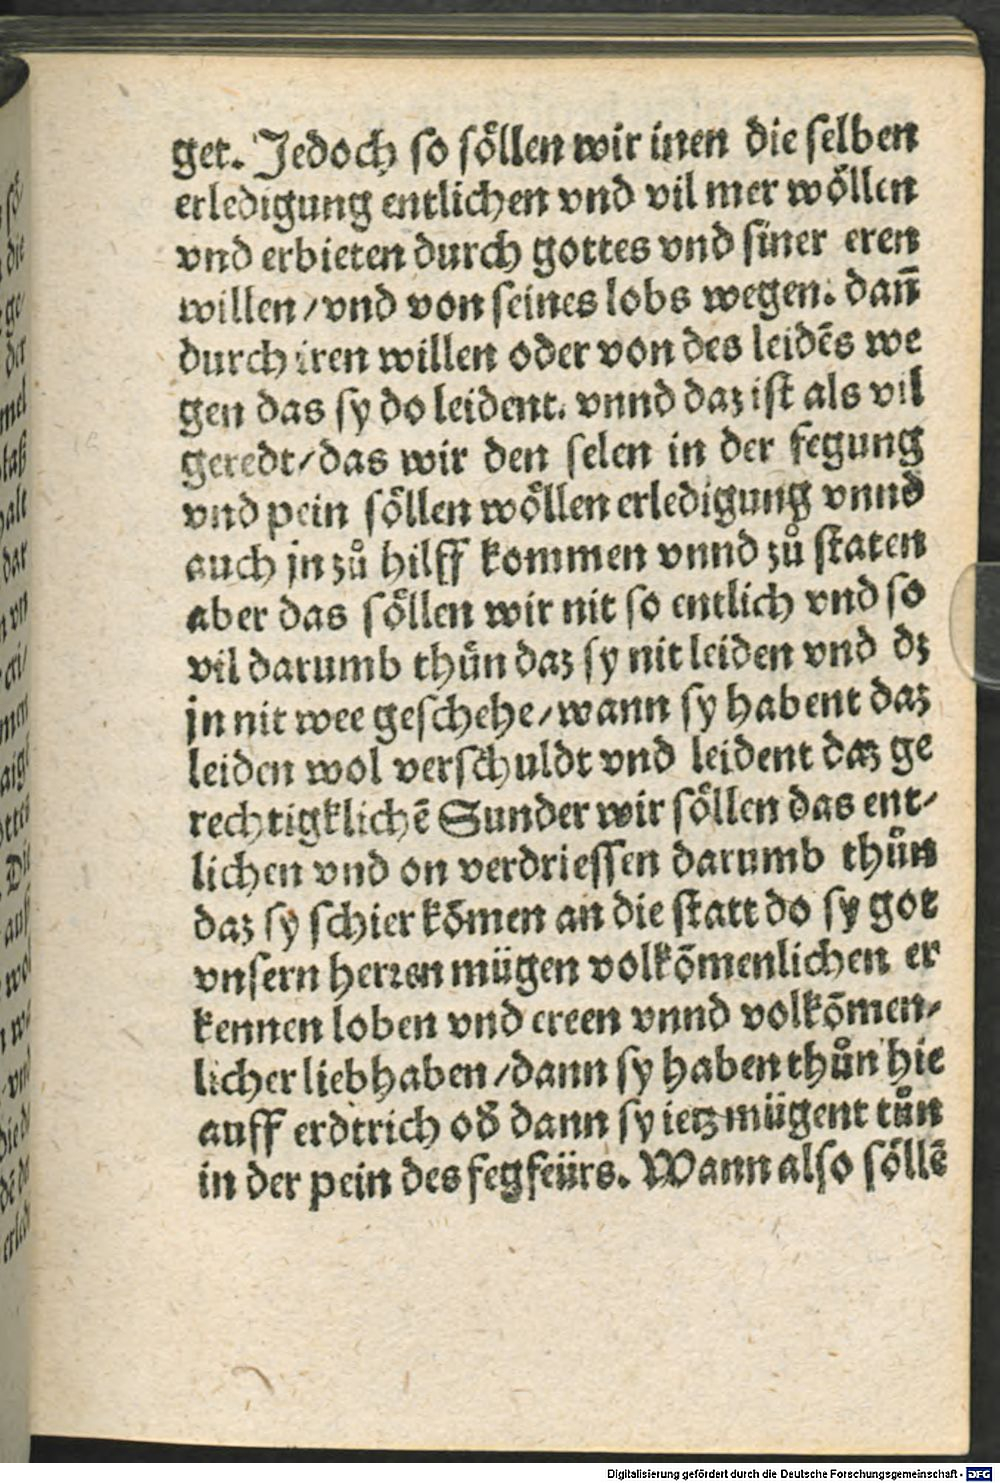 get. Jedoch so soͤllen wir inen die selben
erledigung entlichen vnd vil mer woͤllen
vnd erbieten durch gottes vnd siner eren
willen / vnd von seines lobs wegen. dañ
durch iren willen oder von des leidēs we
gen das sy do leident. vnnd daz ist als vil
geredt / das wir den selen in der fegung
vnd pein soͤllen woͤllen erledigung vnnd
auch jn zuͦ hilff kommen vnnd zuͦ staten
aber das soͤllen wir nit so entlich vnd so
vil darumb thuͦn daz sy nit leiden vnd dz
jn nit wee geschehe / wann sy habent daz
leiden wol verschuldt vnd leident daz ge
rechtigklichē Sunder wir soͤllen das ent⸗
lichen vnd on verdriessen darumb thuͦn
daz sy schier kōmen an die statt do sy got
vnsern herren mügen volkōmenlichen er
kennen loben vnd ereen vnnd volkōmen⸗
licher liebhaben / dann sy haben thuͦn hie
auff erdtrich od̕ dann sy ietz mügent tuͦn
in der pein des fegfeürs. Wann also soͤllē
Digitalisierung gefördert durch die Deutsche Forschungsgemeinschaft - DFG